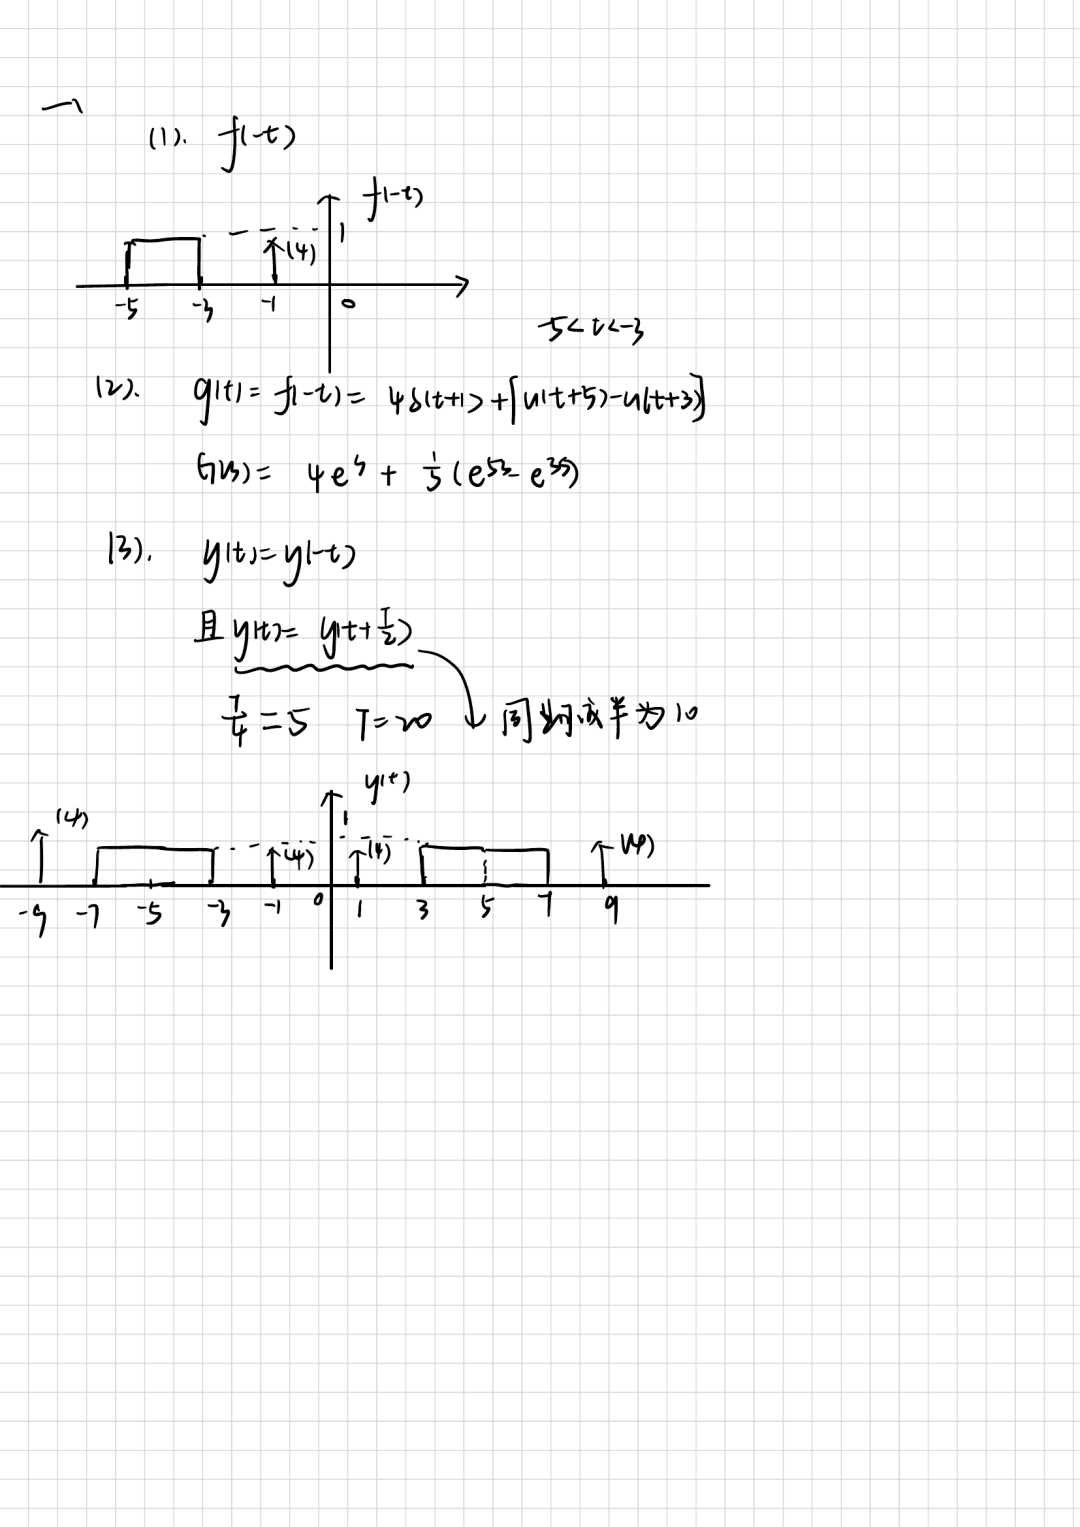 一、
(1). f(-t)
f(-t)
1
(4)
-5 -3 -1 0
-5<t<-3
(2). g(t)= f(-t)= 4δ(t+1)+[u(t+5)-u(t+3)]
G(s)= 4e^s + 1/s (e^5s - e^3s)
(3). y(t)=y(-t)
且 y(t)= y(t+T/2)
T/4=5 T=20 周期减半为10
y(t)
(4) 1 (4) (4) (4)
-9 -7 -5 -3 -1 0 1 3 5 7 9